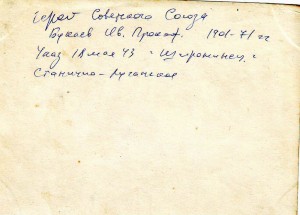 герой Советского Союза
Букаев Ив. Прокоф. 1901-71 гг
Указ 18 мая 43 "Широнинец"
Станично-Луганское